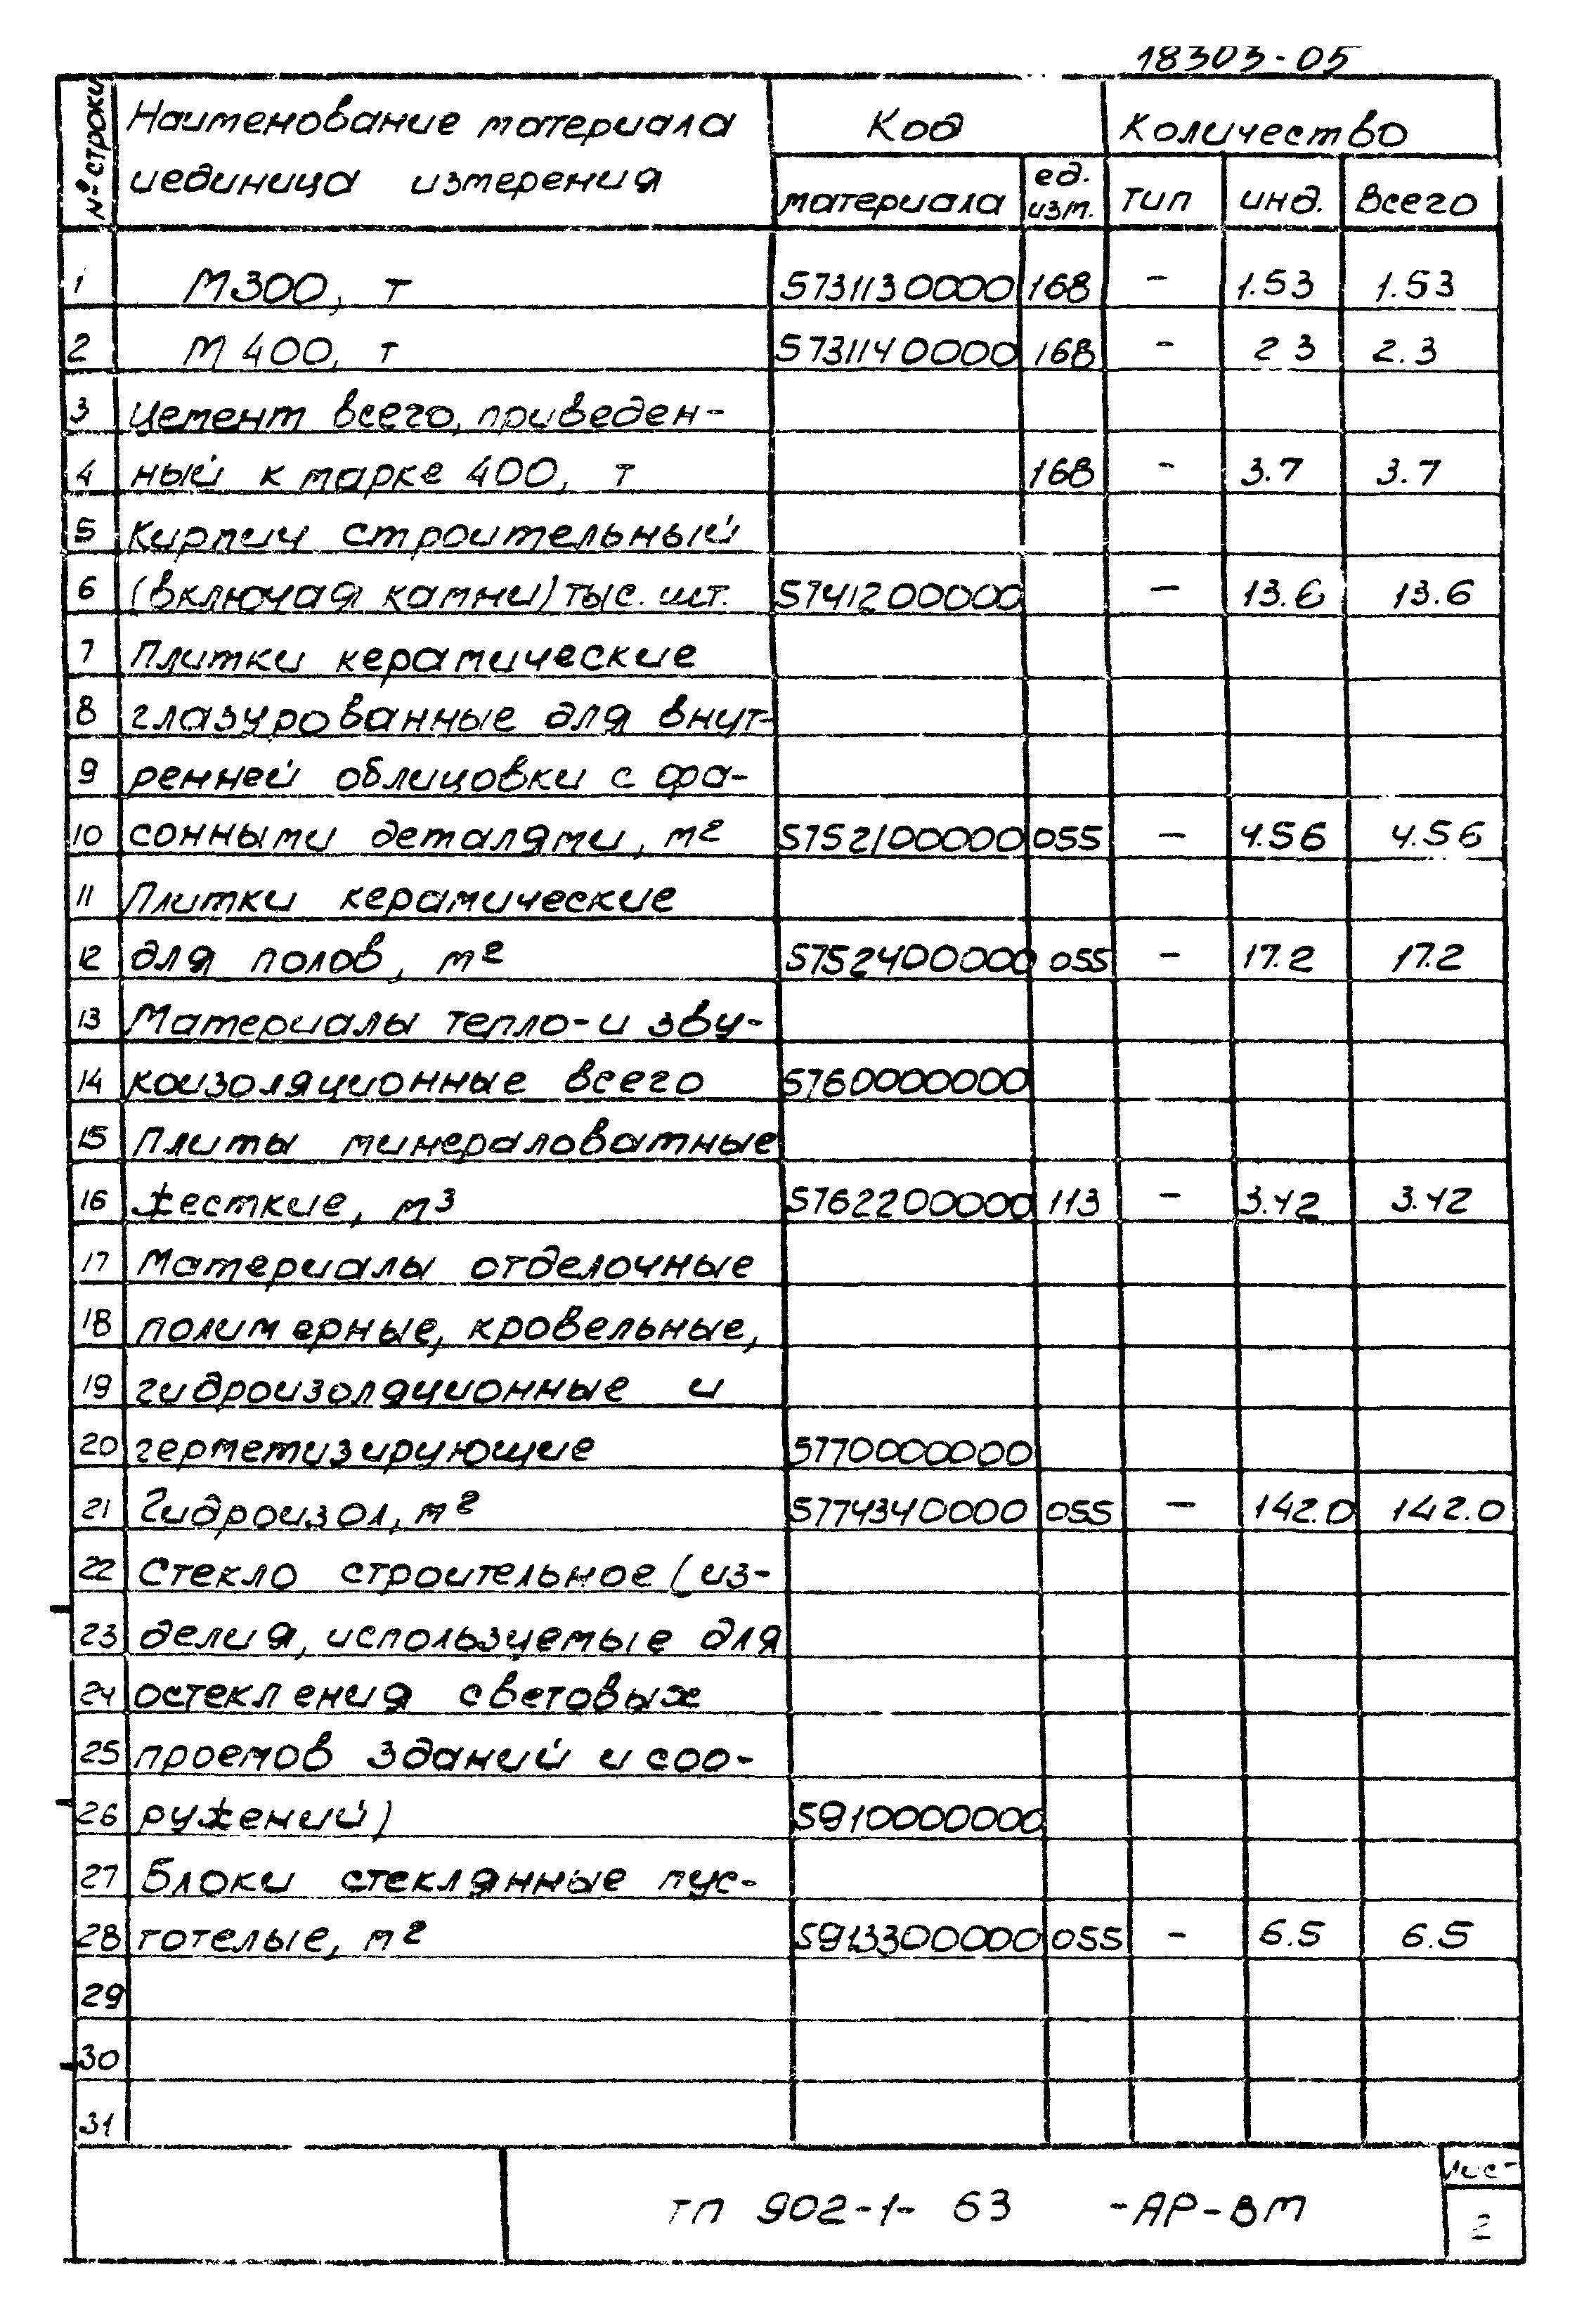 18303-05
№ строки Наименование материала Код Количество
и единица измерения материала ед. изм. тип инд. Всего
1 М300, т 5731130000 168 - 1.53 1.53
2 М 400, т 5731140000 168 - 2 3 2.3
3 Цемент всего, приведен-
4 ный к марке 400, т 168 - 3.7 3.7
5 Кирпич строительный
6 (включая камни) тыс. шт. 5741200000 - 13.6 13.6
7 Плитки керамические
8 глазурованные для внут-
9 ренней облицовки с фа-
10 сонными деталями, м2 5752100000 055 - 4.56 4.56
11 Плитки керамические
12 для полов, м2 5752400000 055 - 17.2 17.2
13 Материалы тепло- и зву-
14 коизоляционные всего 5760000000
15 Плиты минераловатные
16 жесткие, м3 5762200000 113 - 3.42 3.42
17 Материалы отделочные
18 полимерные, кровельные,
19 гидроизоляционные и
20 герметизирующие 5770000000
21 Гидроизол, м2 5774340000 055 - 142.0 142.0
22 Стекло строительное (из-
23 делия, используемые для
24 остекления световых
25 проемов зданий и соо-
26 ружений) 5910000000
27 Блоки стеклянные пус-
28 тотелые, м2 5913300000 055 - 6.5 6.5
29
30
31
ТП 902-1- 63 -АР-ВМ
Лист
2